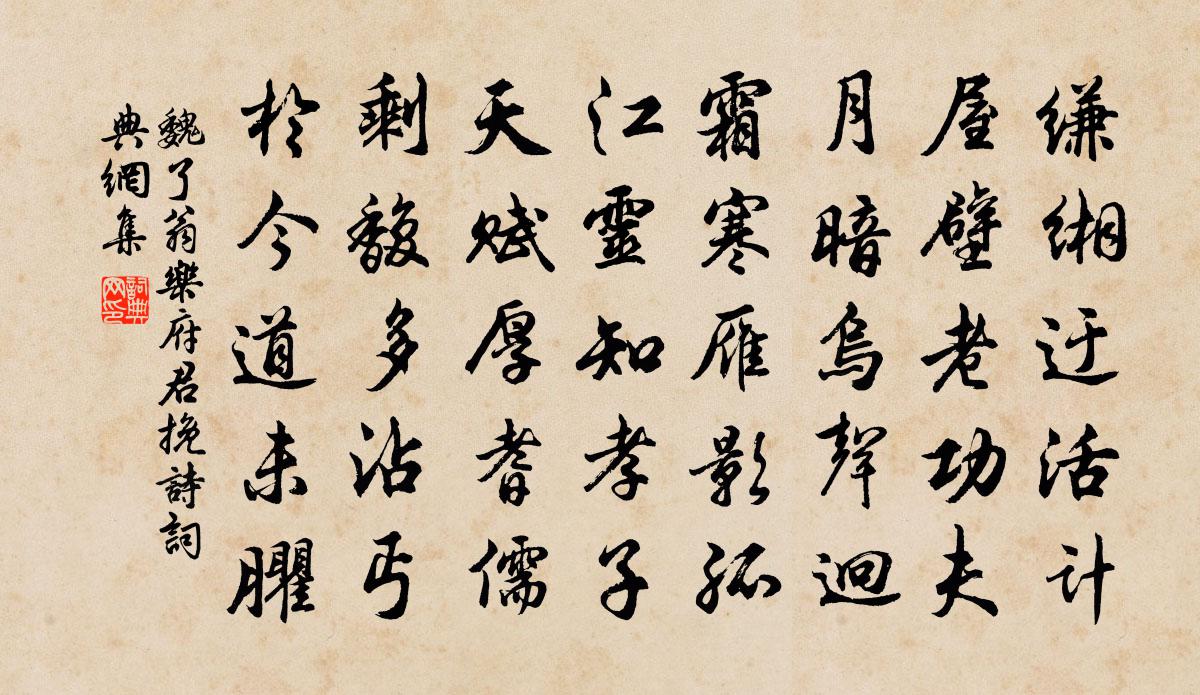 縑緗迂活計
屋壁老功夫
月暗烏聲迥
霜寒雁影孤
江靈知孝子
天賦厚耆儒
剩馥多沾丐
於今道未臞
魏了翁樂府君挽詩詞
典網集
詞典网印